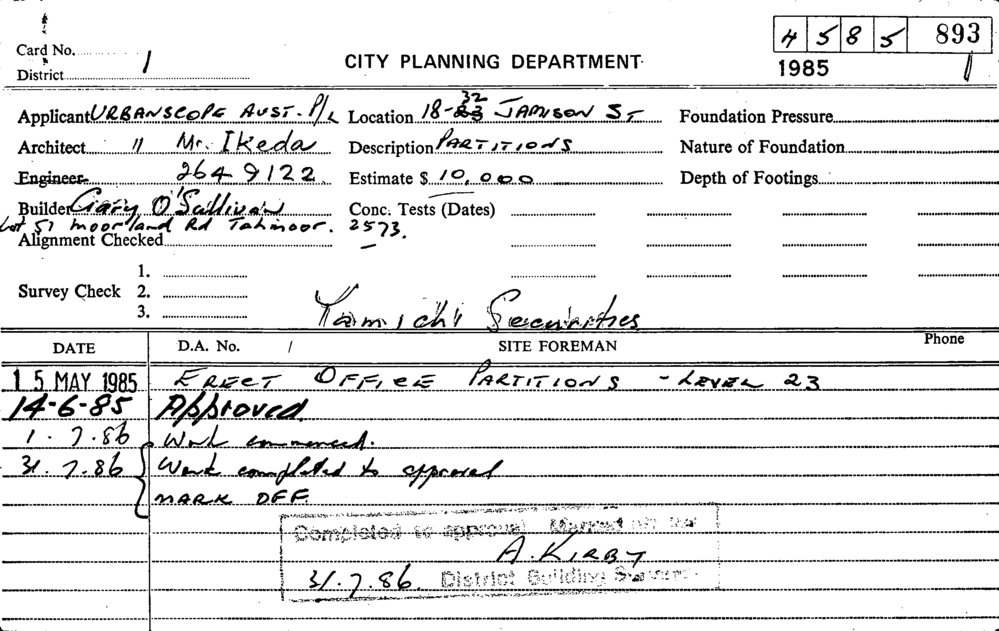 4 5 8 5 893
Card No.
CITY PLANNING DEPARTMENT
District 1
1985 1
Applicant URBANSCOPE AUST. P/L Location 18-23 32 JAMISON ST Foundation Pressure
Architect " Mr. Ikeda Description PARTITIONS Nature of Foundation
Engineer 264 9122 Estimate $ 10,000 Depth of Footings
Builder Gary O'Sullivan Conc. Tests (Dates)
Lot 51 Moorland Rd Tahmoor. 2573.
Alignment Checked
1.
Survey Check 2.
3.
Yamichi Securities
DATE D.A. No. / SITE FOREMAN Phone
15 MAY 1985 ERECT OFFICE PARTITIONS - LEVEL 23
14-6-85 Approved
1.7.86 Work commenced.
31.7.86 Work completed to approval
MARK OFF.
Completed to approval Marked off
A. KIRBY
31.7.86. District Building